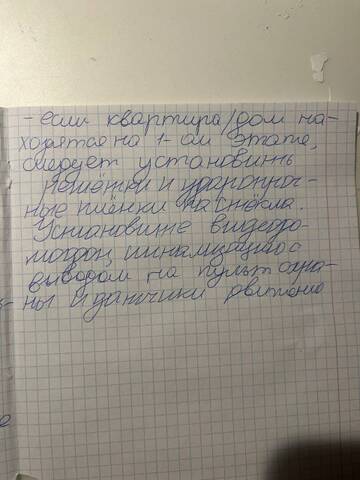 - если квартира/дом на-
ходятся на 1-ом этаже,
следует установить
решётки и ударопроч-
ные плёнки на стёкла.
Установите видеодо-
мофон, сигнализацию с
выводом на пульт охра-
ны и датчики движения